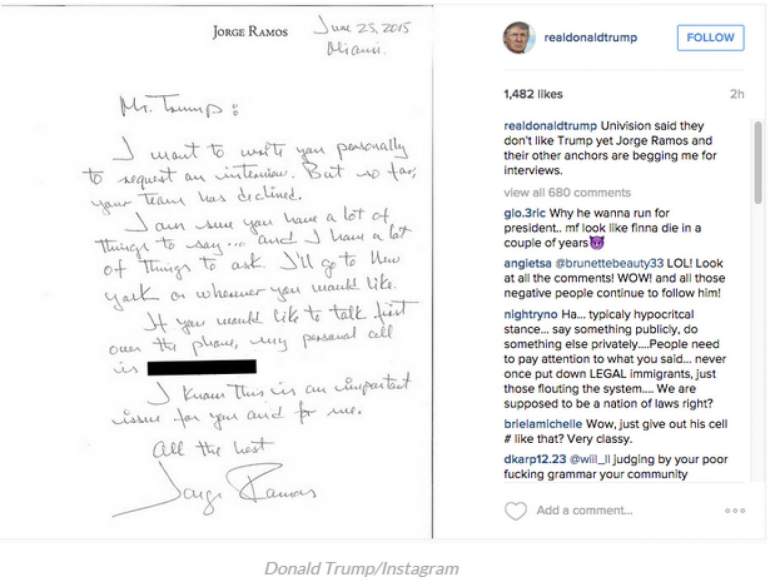 JORGE RAMOS
June 25, 2015
Miami.
Mr. Trump:
I want to write you personally
to request an interview. But so far,
your team has declined.
I am sure you have a lot of
things to say... and I have a lot
of things to ask. I'll go to New
York or wherever you would like.
If you would like to talk first
over the phone, my personal cell
is
I know this is an important
issue for you and for me.
All the best
Jorge Ramos
realdonaldtrump
FOLLOW
1,482 likes
2h
realdonaldtrump Univision said they
don't like Trump yet Jorge Ramos and
their other anchors are begging me for
interviews.
view all 680 comments
glo.3ric Why he wanna run for
president.. mf look like finna die in a
couple of years😈
angietsa @brunettebeauty33 LOL! Look
at all the comments! WOW! and all those
negative people continue to follow him!
nightryno Ha... typicaly hypocritcal
stance... say something publicly, do
something else privately....People need
to pay attention to what you said... never
once put down LEGAL immigrants, just
those flouting the system.... We are
supposed to be a nation of laws right?
brielamichelle Wow, just give out his cell
# like that? Very classy.
dkarp12.23 @will_ll judging by your poor
fucking grammar your community
Add a comment...
Donald Trump/Instagram